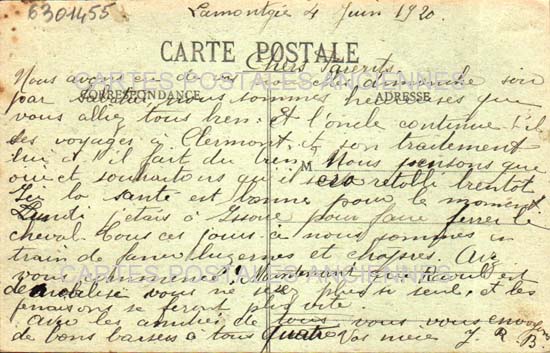 6301455
Lamontgie 4 Juin 1920.
CARTE POSTALE
Chers Parents
Nous avons eu de vos nouvelles dimanche soir
CARTES POSTALES ANCIENNES
CORRESPONDANCE
ADRESSE
par nous sommes heureuses que
vous alliez tous bien. et l'oncle continue t'il
ses voyages à Clermont, et son traitement
lui a t'il fait du bien. Nous pensons que
M
oui et souhaitons qu'il sera rétabli bientôt
Ici la santé est bonne pour le moment
Lundi j'étais à Issoire pour faire ferrer le
cheval. Tous ces jours-ci nous sommes en
train de faner luzernes et trèfles. Avez
CARTES POSTALES ANCIENNES
vous commencé? Maintenant que Raoul est
démobilisé vous ne serez plus si seul, et les
fenaisons se feront plus vite.
Avec les amitiés de tous vous vous envoyer
de bons baisers à tous quatre Vos nièces J R B